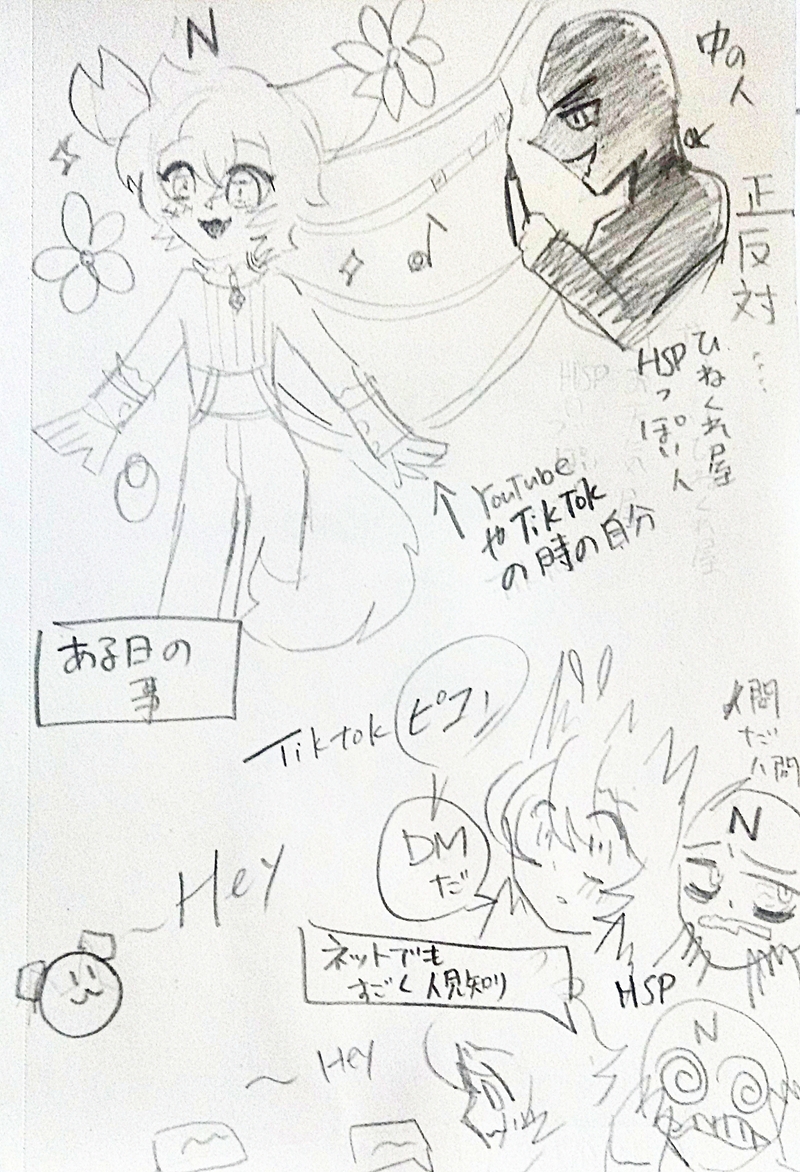 N
中の人
正反対…
ひねくれ屋
HSPっぽい人
YouTube
やTikTok
の時の自分
ある日の
事
Tiktok
ピコン
DM
だ
人間
だ
人間
N
Hey
ネットでも
すごく人見知り
HSP
N
Hey